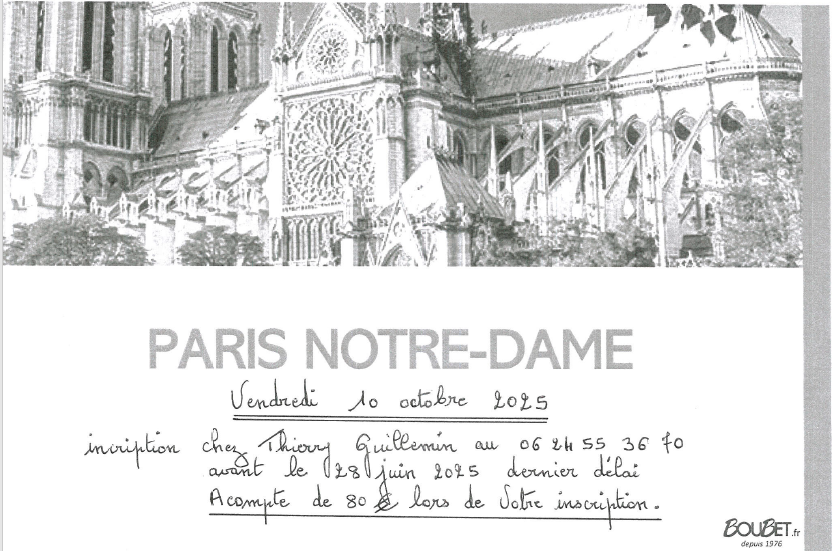 PARIS NOTRE-DAME
Vendredi 10 octobre 2025
incription chez Thierry Guillemin au 06 24 55 36 70
avant le 28 juin 2025 dernier délai
Acompte de 80 € lors de Votre inscription.
BOUBET.fr
depuis 1976